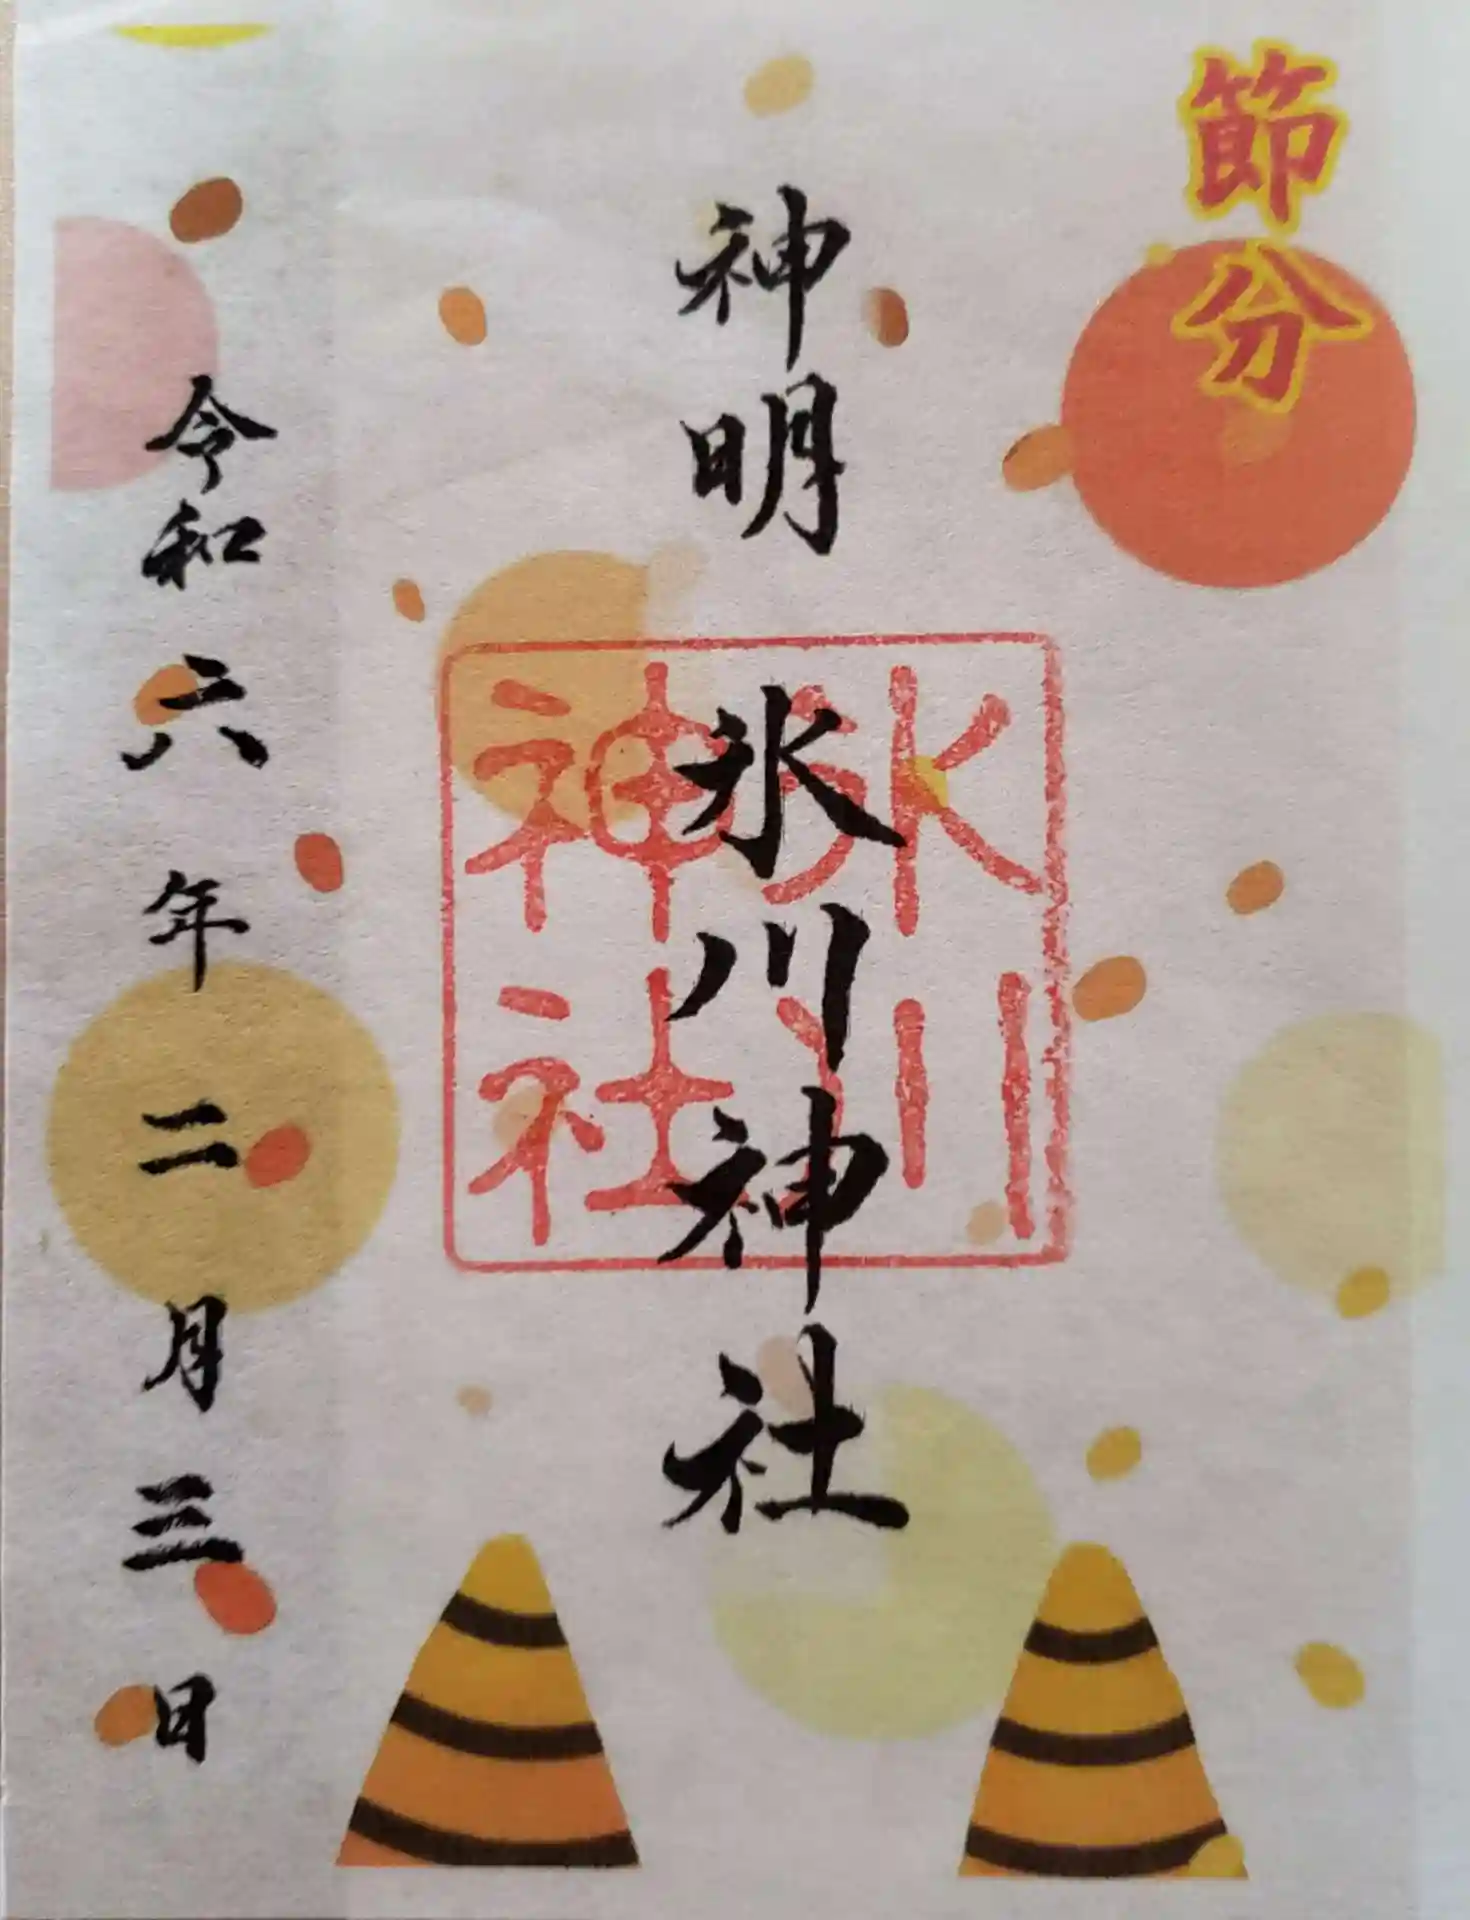 節分
神明氷川神社
氷川神社
令和六年二月三日